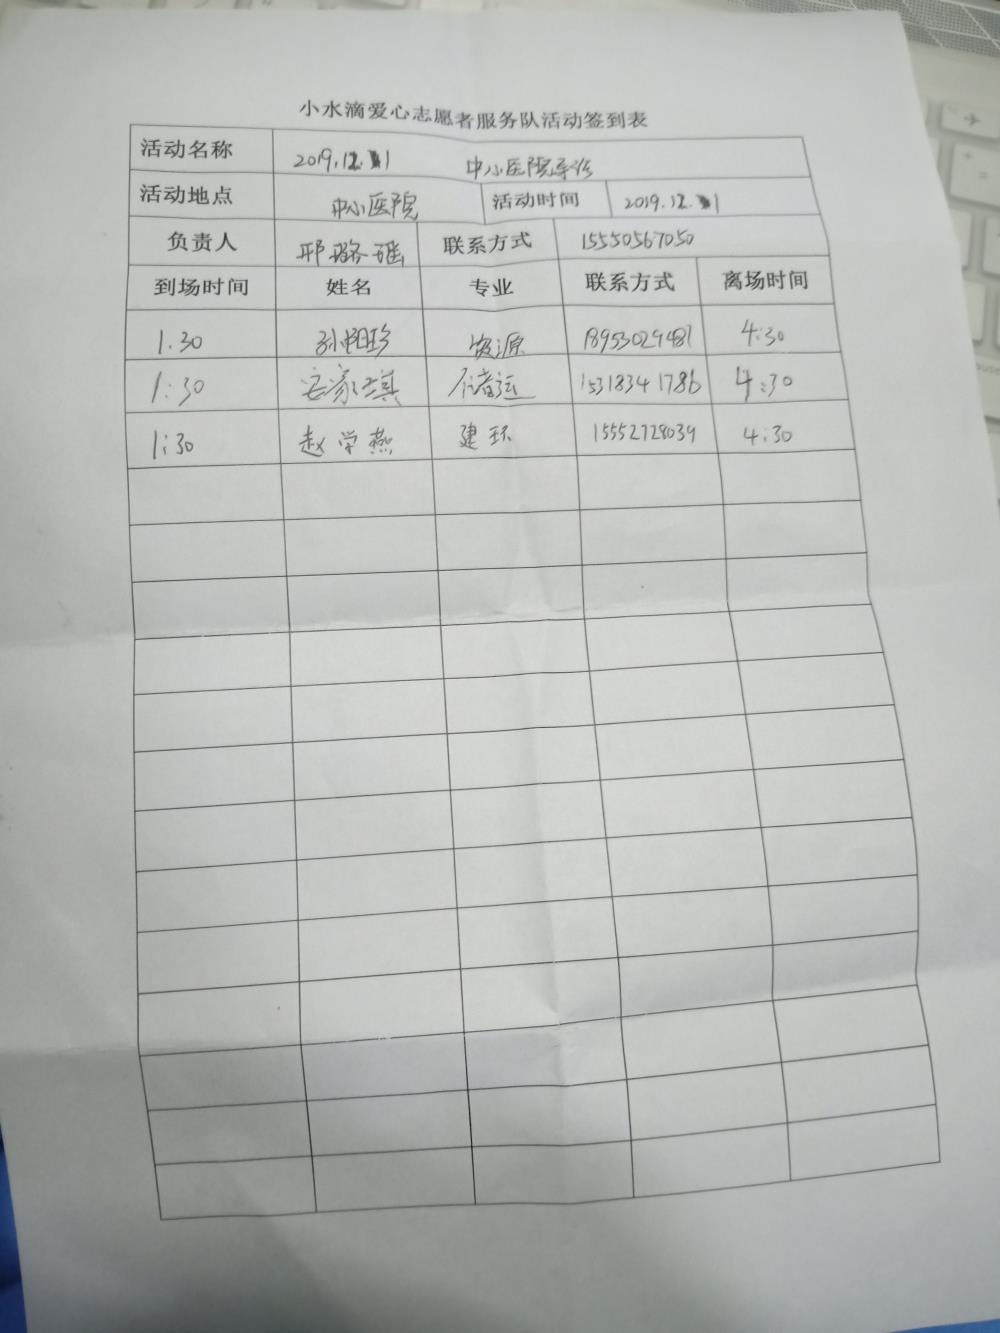 小水滴爱心志愿者服务队活动签到表
活动名称 2019.12.1 中心医院导诊
活动地点 中心医院 活动时间 2019.12.1
负责人 邢璐瑶 联系方式 15550567050
到场时间 姓名 专业 联系方式 离场时间
1.30 孙阳珍 资源 18953029481 4:30
1:30 安家琪 储运 15318341786 4:30
1:30 赵学燕 建环 15552728039 4:30